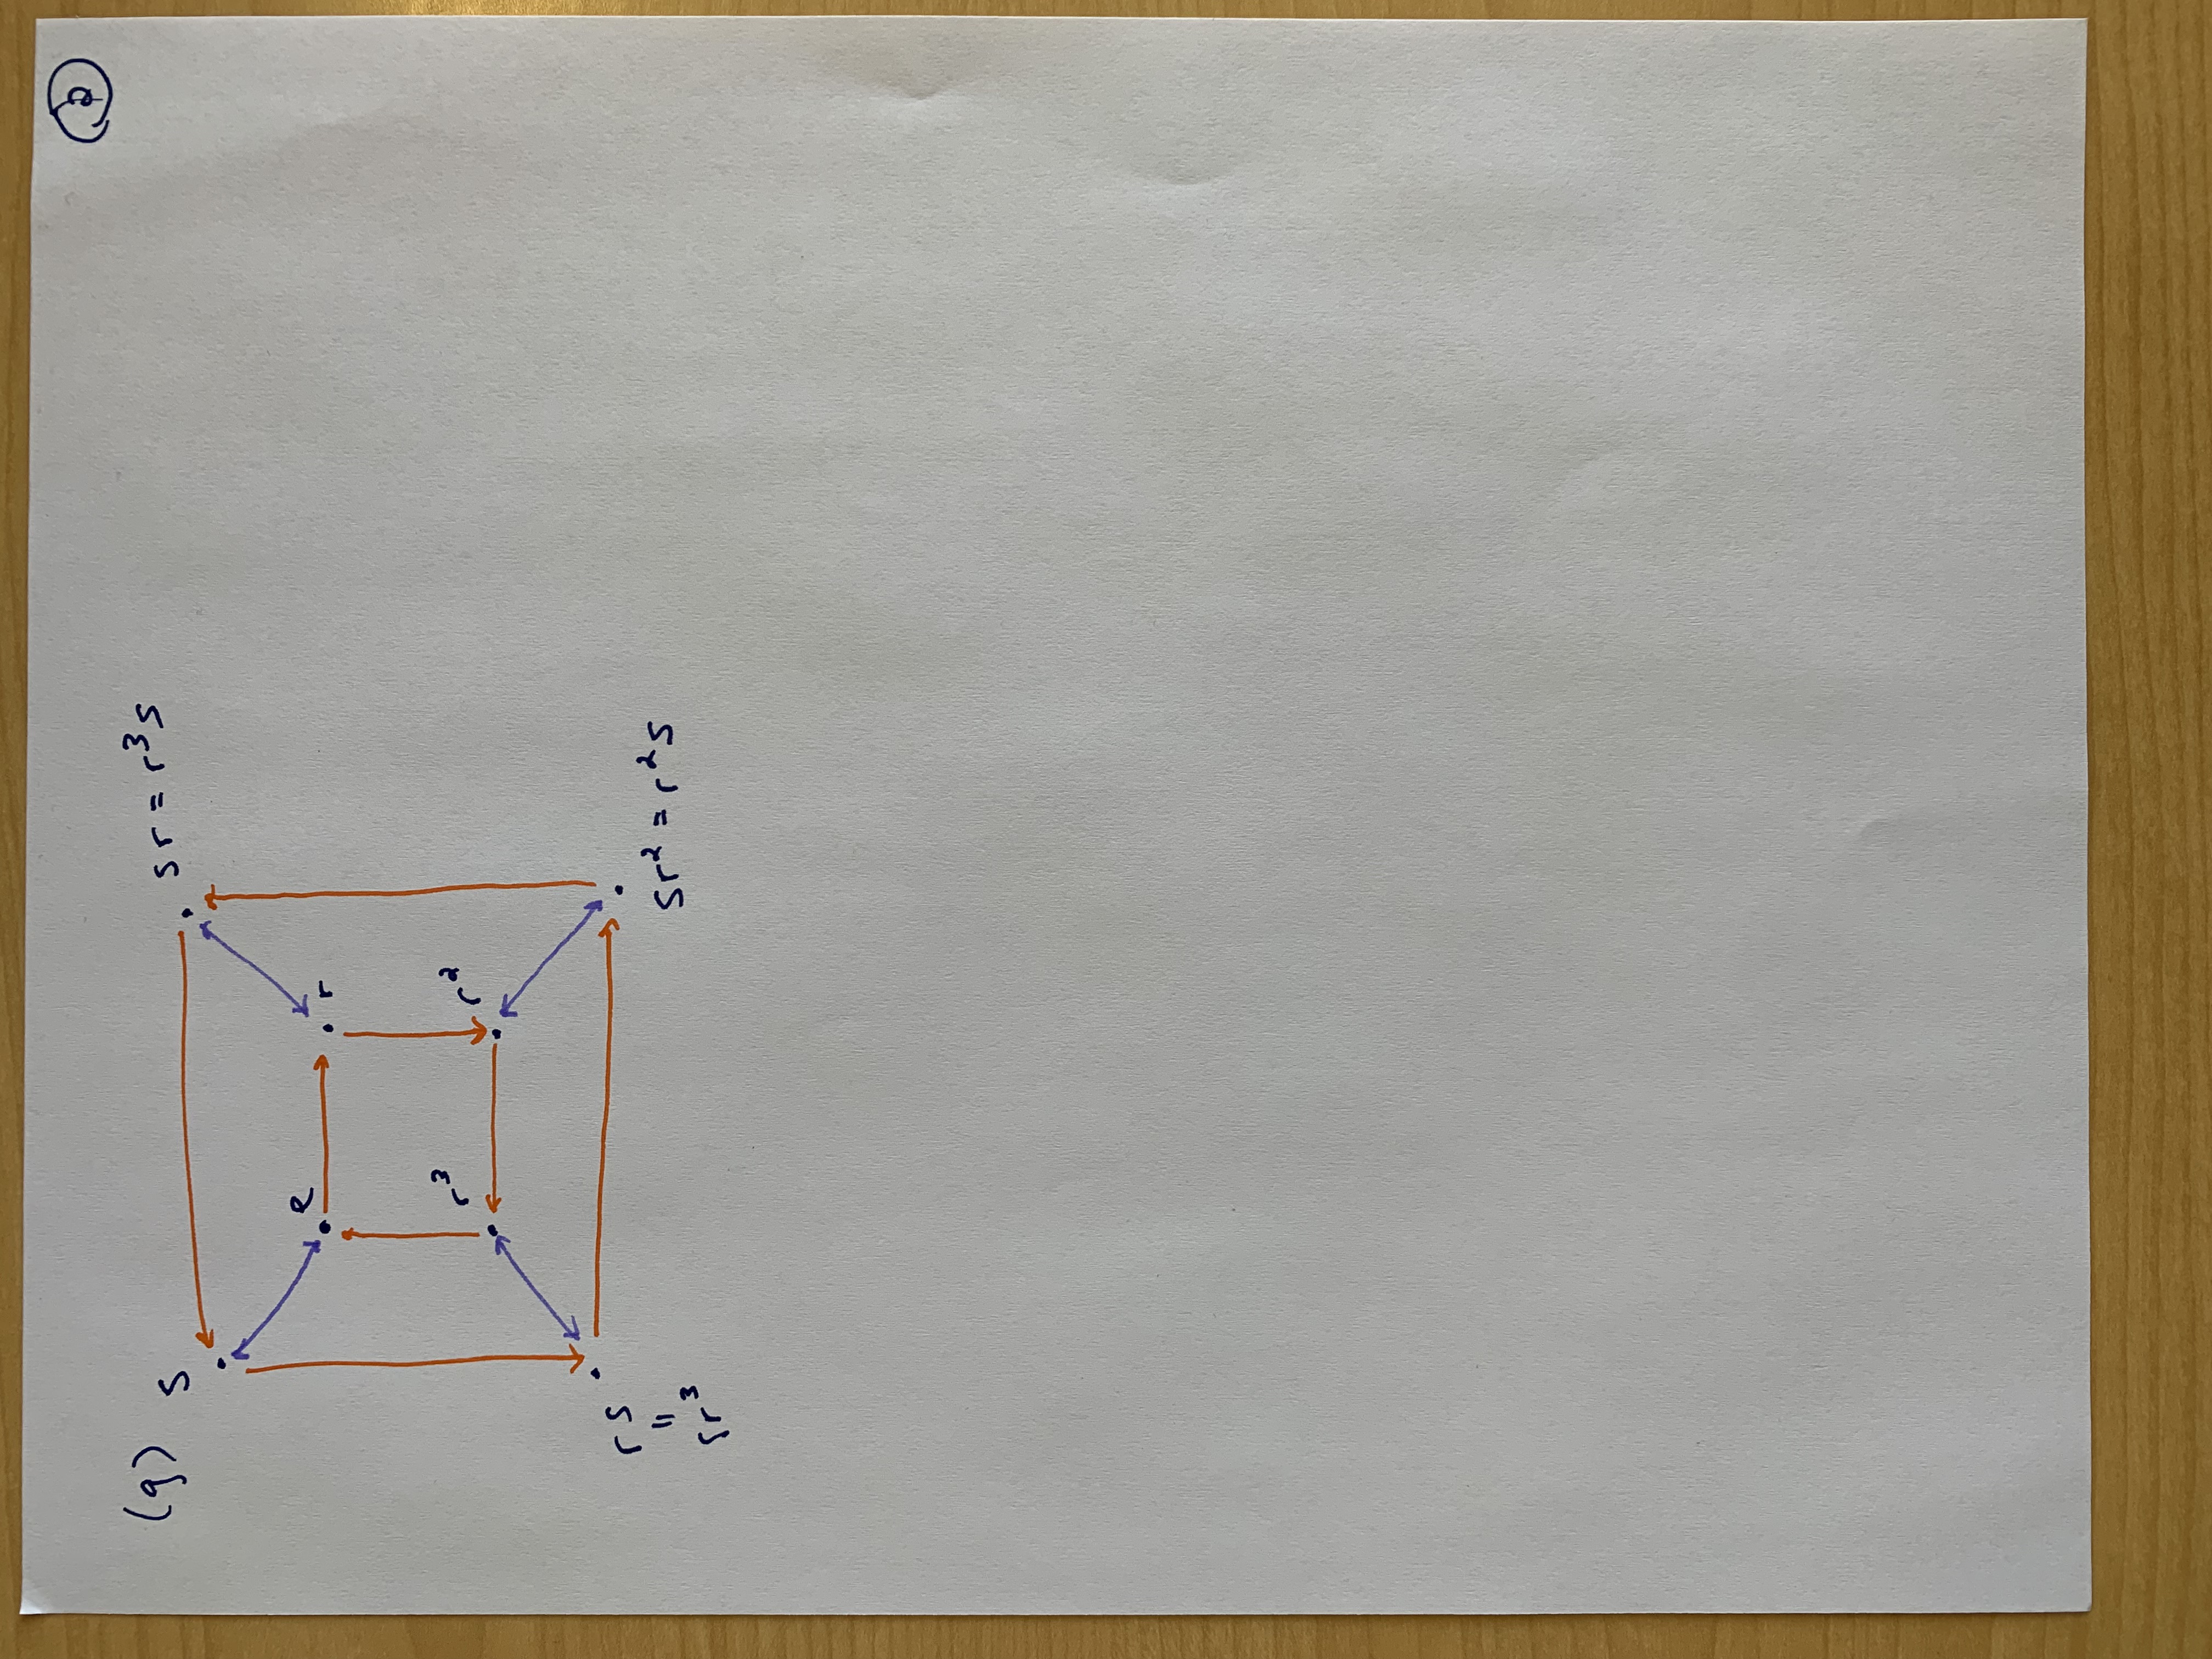 2
(g) s
sr = r³s
e
r
r³
r²
rs
=
sr³
sr² = r²s